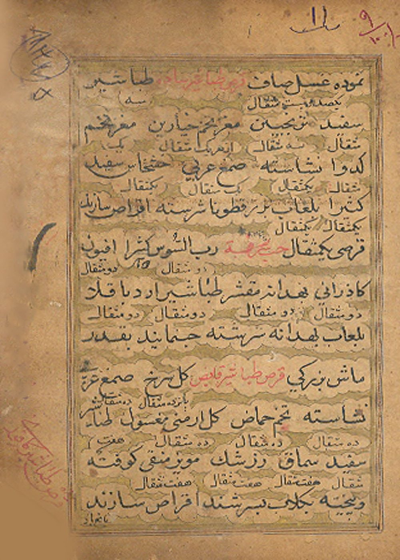 نموده عسل صاف قرص طباشیر طباشیر
یکصد و بیست مثقال سه
سفید ترنجبین مغز تخم خیارین مغز تخم
مثقال سه مثقال از هر یک مثقال یک
کدو نشاسته صمغ عربی خشخاش سفید
مثقال یکمثقال یک مثقال یکمثقال
کتیرا بلعاب بزرقطونا سرشته اقراص سازند
یکمثقال یکمثقال
قرصی یکمثقال حب رب السوس کتیرا افیون
دو مثقال دو مثقال
بهدانه مقشر طباشیر ارد باقلا
دو مثقال دو مثقال دو مثقال دو مثقال
بلعاب بهدانه سرشته حب نمایند بقدر
ماش بزرکی قرص طباشیر قابض کل سرخ صمغ عربی
پانزده مثقال ده مثقال
نشاسته تخم حماض کل ارمنی مغسول طباشیر
ده مثقال ده مثقال ده مثقال هفت
سفید سماق زرشک مویز منقی کوفته
مثقال هفت مثقال هفت مثقال هفت مثقال
و بیخته بجلاب بسرشند اقراص سازند